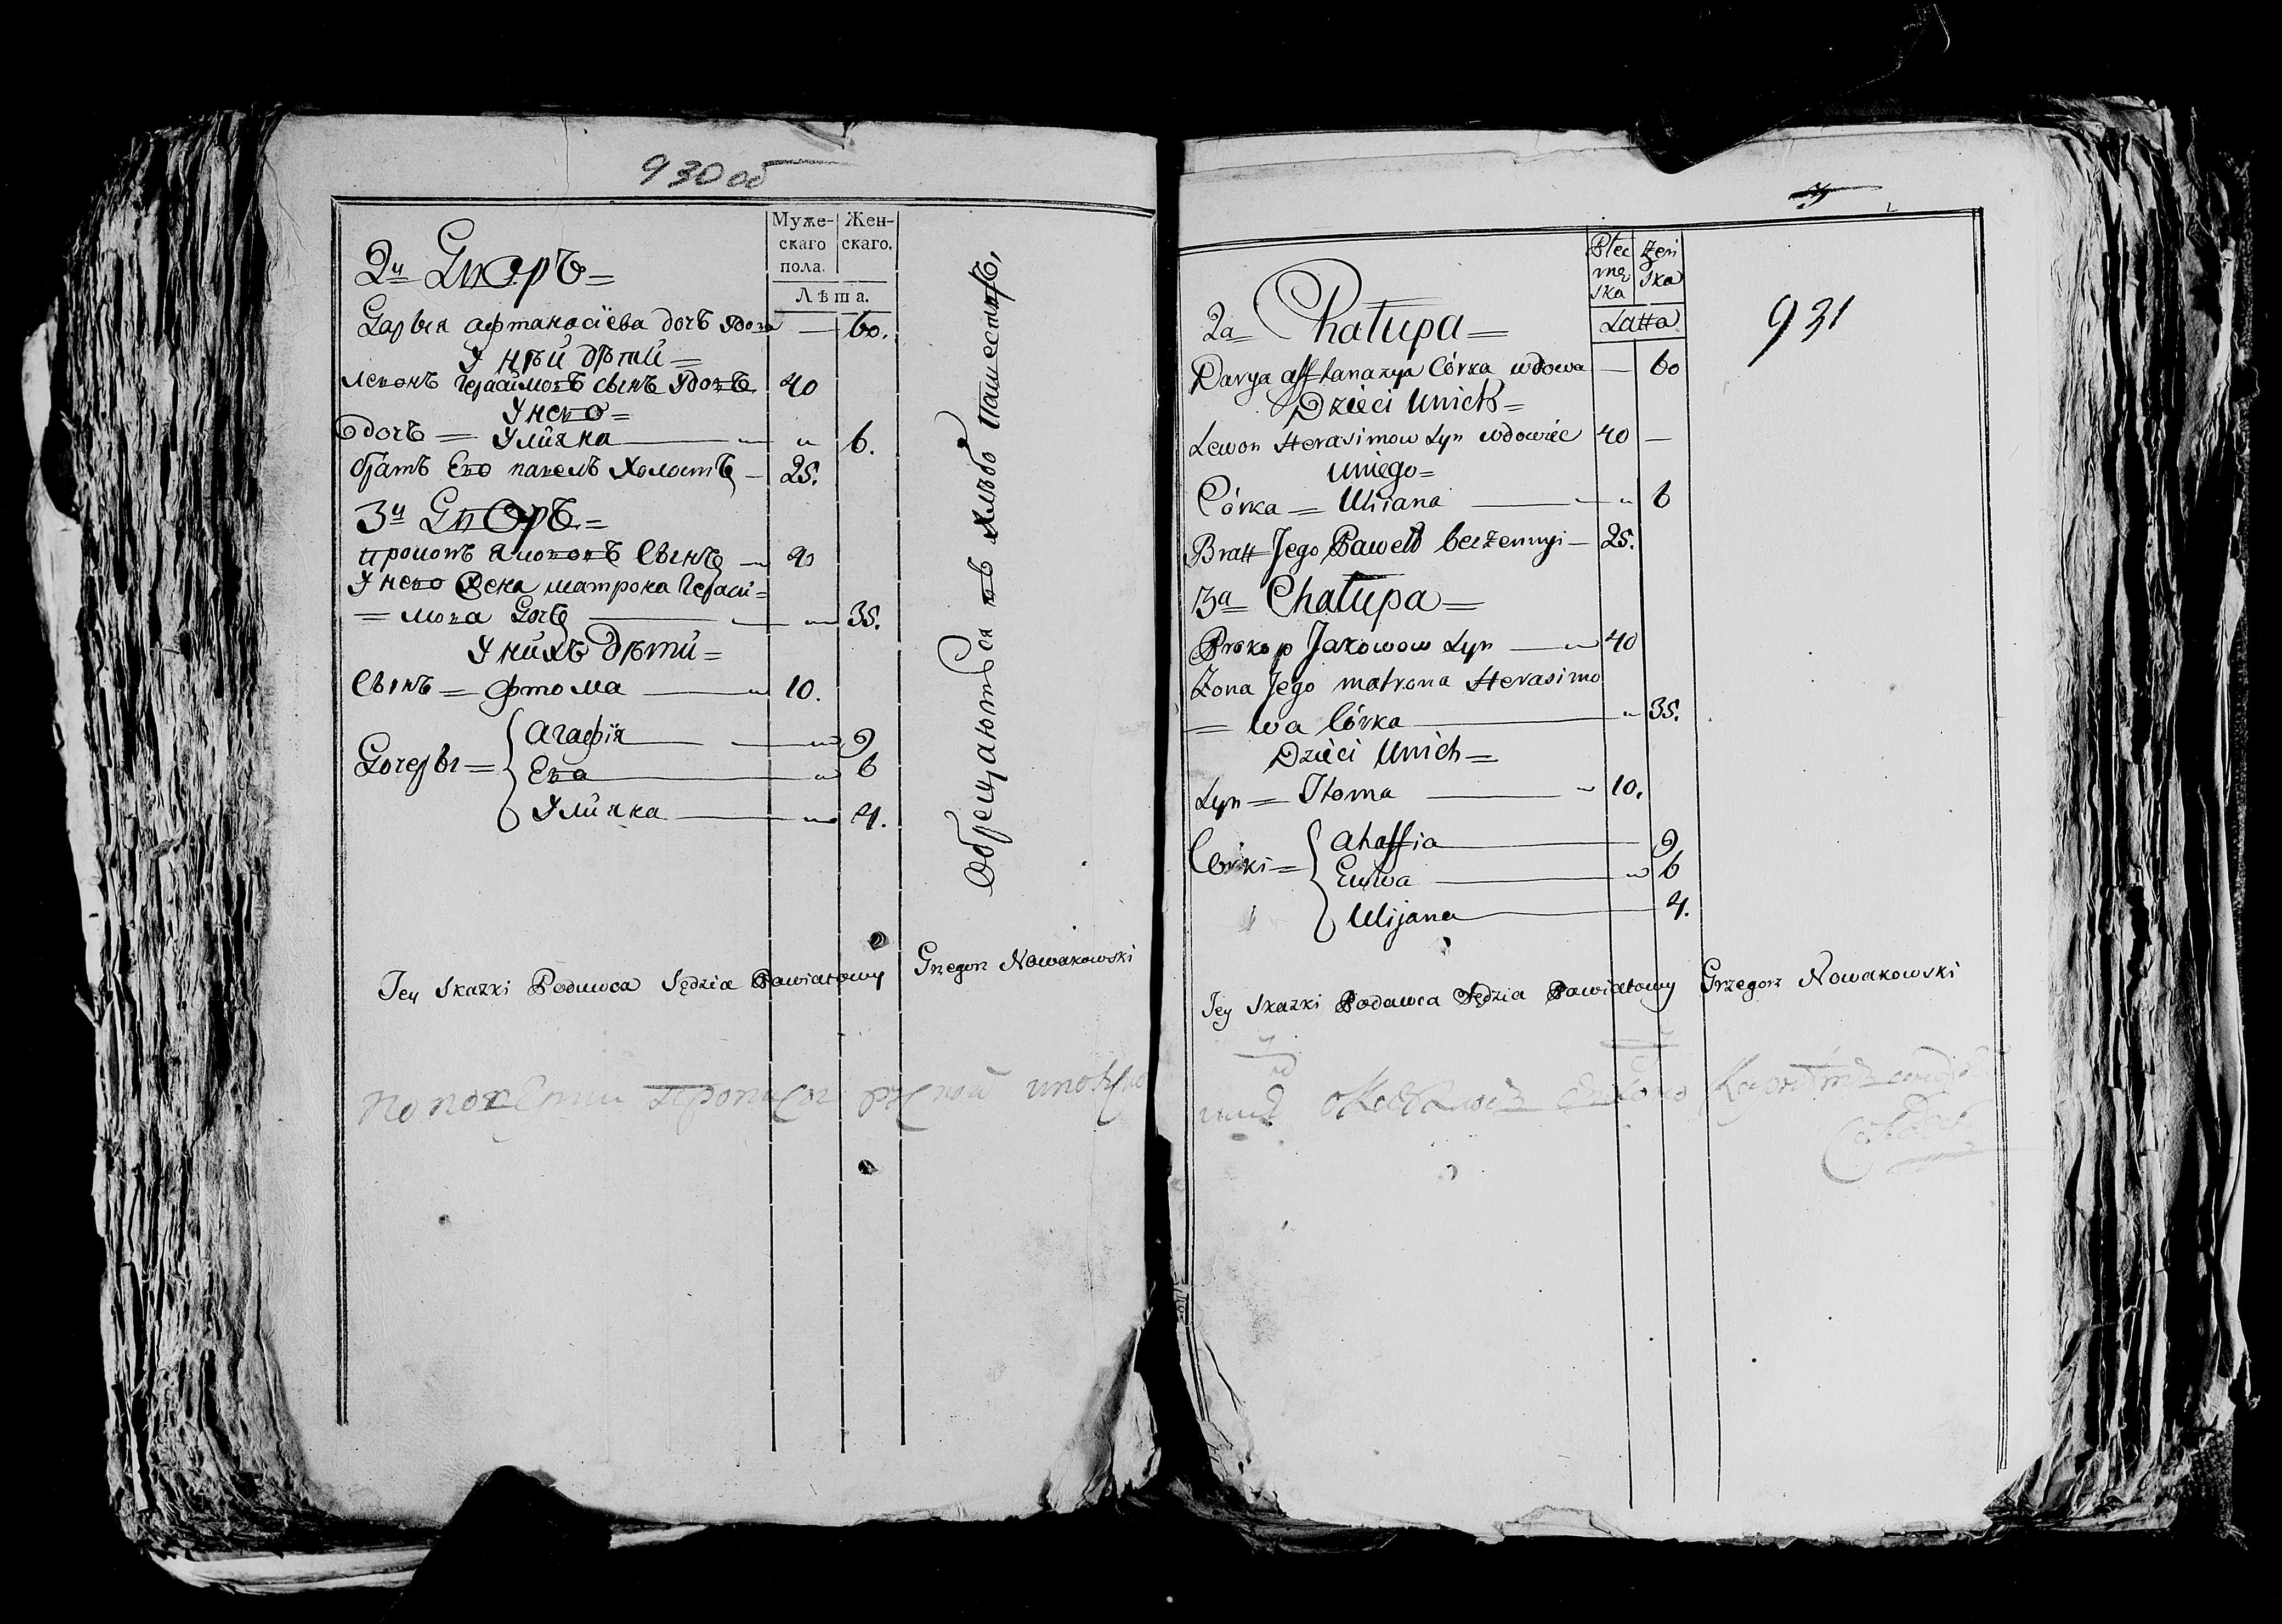 930 об
Муже-
скаго
пола.
Жен-
скаго.
Лѣта.
2й Дворъ=
Дарья афтанасіева дочъ вдова — 60.
У нѣй дѣти=
Левонъ Герасимовъ сынъ вдовъ 40
У нево=
дочъ = Улияна — 6.
братъ Ево павелъ холостъ — 25.
3й Дворъ=
прокопъ якововъ сынъ — 40
У нево Жена матрона Гераси=
=мова дочъ — 35.
У нихъ дѣти=
сынъ = фтома — 10.
Дочеры =
агафія — 9
Ева — 6
Улияна — 4.
Обрещаютъся въ хлѣбопашестве,
Jey Skazki Podawca Sędzia Powiatowy Grzegorz Nowakowski
931
Płec
mę
ska
żeń
ska
Latta
2a= Chałupa=
Darya affanazya Córka wdowa — 60
Dzieci Unich=
Lewon Herasimow Syn wdowiec 40 —
Uniego=
Córka = Uliana — 6
Bratt Jego Paweł bezżennyi — 25.
3a= Chałupa=
Prokop Jakowow Syn — 40
Żona Jego matrona Herasimo
= wa Córka — 35.
Dzieci Unich=
Syn = Ftoma — 10.
Córki =
ahaffia — 9
Ewwa — 6
Ulijana — 4.
Jey Skazki Podawca Sędzia Powiatowy Grzegorz Nowakowski